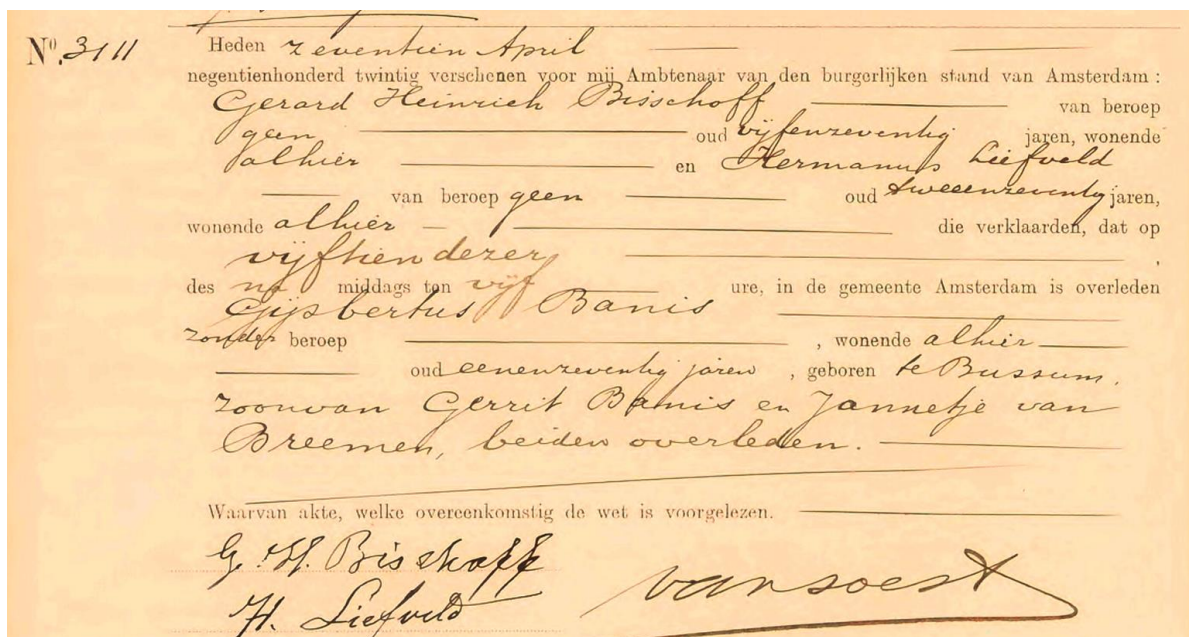 Nº. 3111
Heden zeventien April
negentienhonderd twintig verschenen voor mij Ambtenaar van den burgerlijken stand van Amsterdam :
Gerard Heinrich Bisschoff van beroep
geen oud vijfenzeventig jaren, wonende
alhier en Hermanus Liefveld
van beroep geen oud tweeenzeventig jaren,
wonende alhier die verklaarden, dat op
vijftien dezer ,
des na middags ten vijf ure, in de gemeente Amsterdam is overleden
Gijsbertus Banis
zonder beroep , wonende alhier
oud eenenzeventig jaren , geboren te Bussum,
zoon van Gerrit Banis en Jannetje van
Breemen, beiden overleden.
Waarvan akte, welke overeenkomstig de wet is voorgelezen.
G. H. Bisschoff
H. Liefveld
van Soest